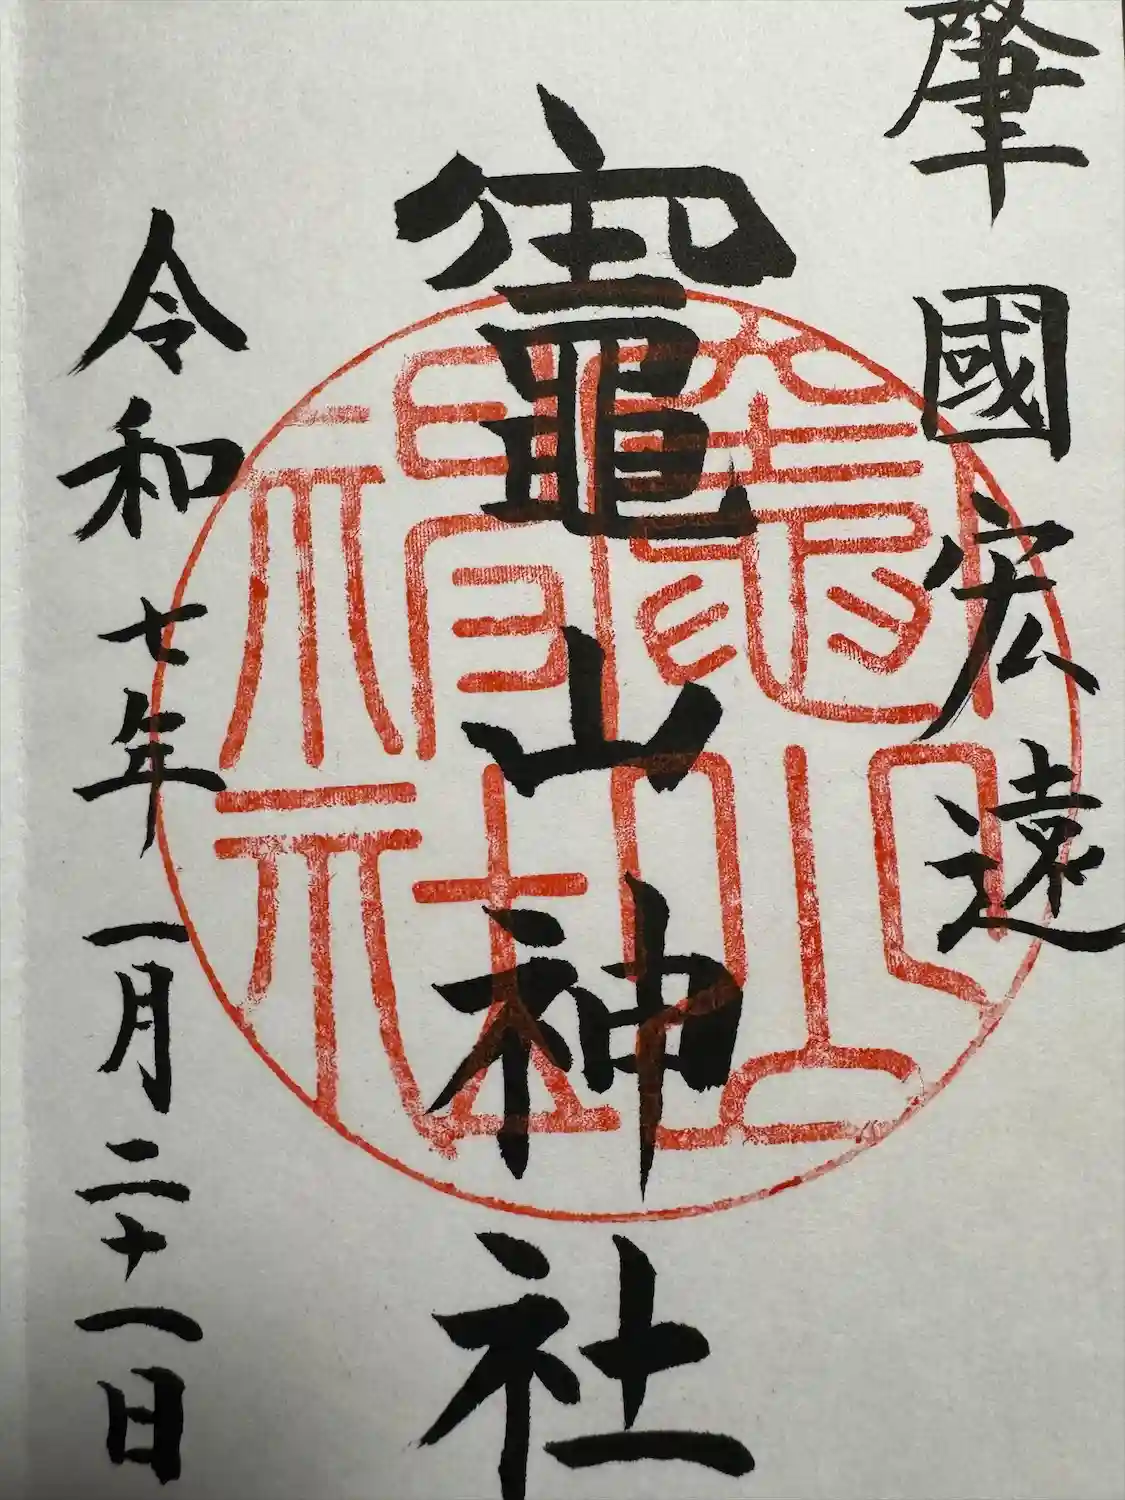 肇國宏遠
竈山神社
令和七年一月二十一日
竈山神社